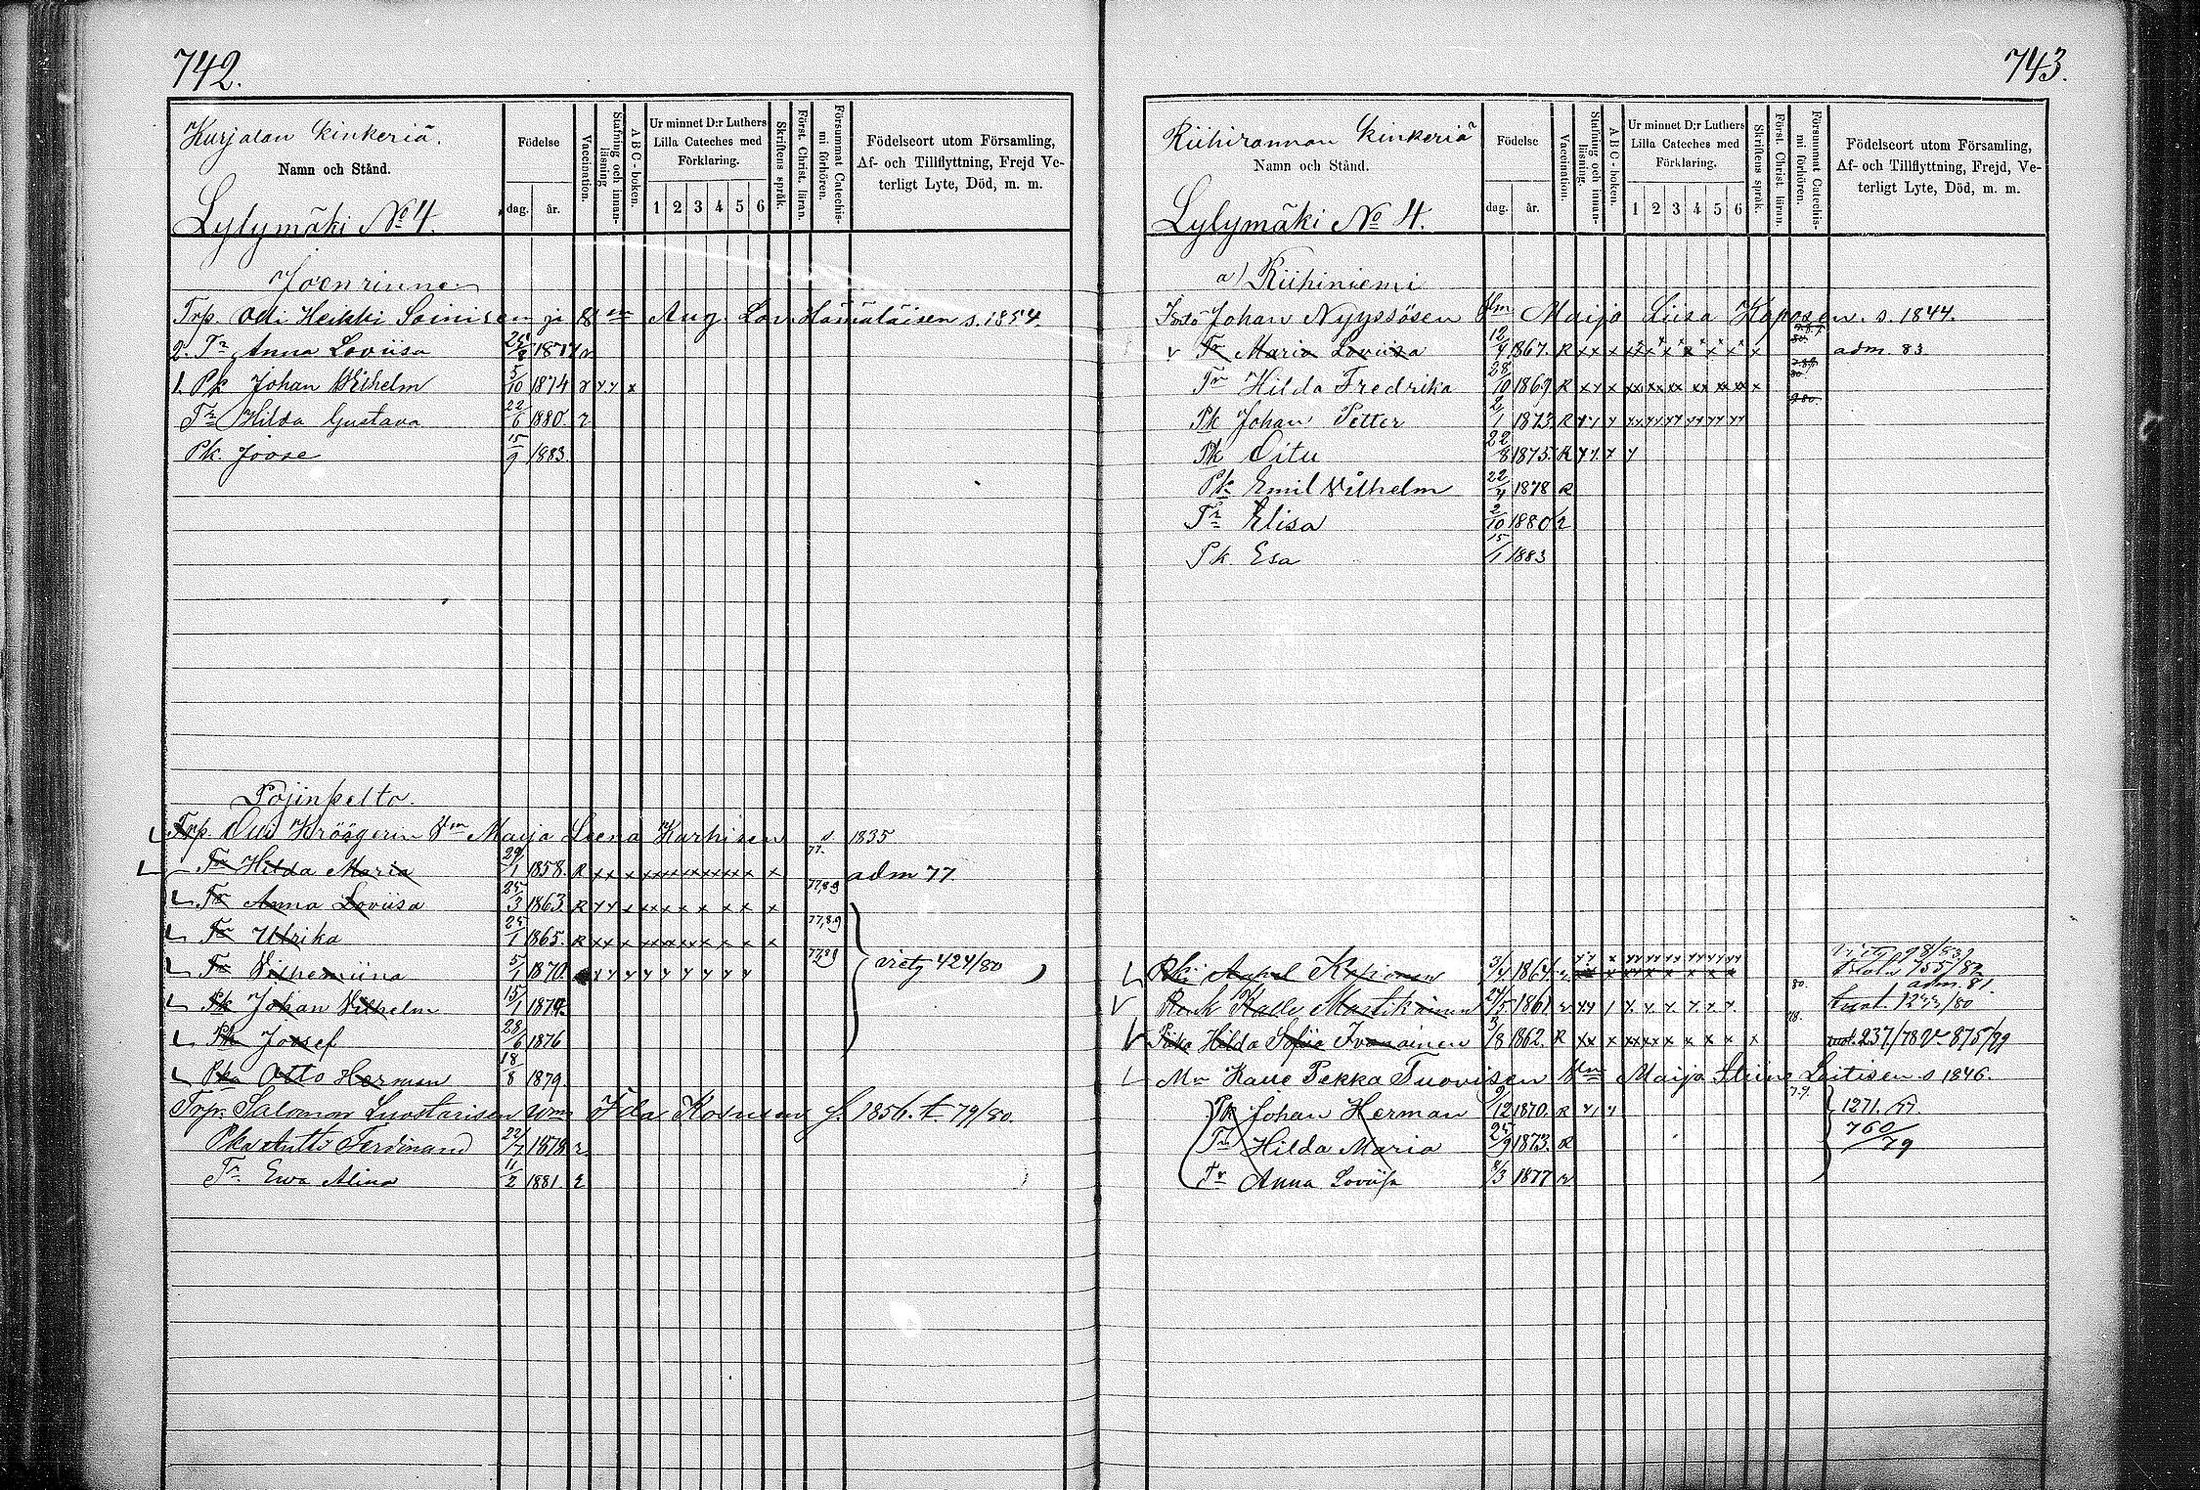 742.
Kurjalan kinkeriä.
Namn och Stånd.
Lylymäki No 4.
Födelse
dag. år.
Vaccination.
Stafning och innanläsning
A B C-boken.
Ur minnet D:r Luthers Lilla Cateches med Förklaring.
1 2 3 4 5 6
Skriftens språk.
Först. Christ. läran.
Försummat Catechismi förhören.
Födelseort utom Församling, Af- och Tillflyttning, Frejd Veterligt Lyte, Död, m. m.
Joenrinne
Trp. Heikki Soinisen Aug. Lov. Hämäläisen s. 1854.
2. Tr Anna Loviisa 1877 r
1. Pk Johan Wilhelm 5/10 1874 x x x x
Tr Hilda Gustava 22/6 1880. r
Pk. Joose 15/9 1883
Pojinpelto.
Trp. Kröögerin Vm Maija Leena Karhisen s 1835
Tr Hilda Maria 29/1 1858. R x x x x x x x x x x x 77. adm 77.
Tr Anna Loviisa 25/3 1863. R
Tr Ulrika 25/1 1865. R
Tr Vilhemiina 5/1 1870. 424/80
Pk Johan Vilhelm 15/1 1874.
Pk Josef 28/6 1876
Pka Otto Herman 18/8 1879.
Trp. Salomon Luostarisen Wm Ida 1856. t. 79/80.
Pka Antti Ferdinand 22/7 1878 r
Tr Ewa Alina 11/2 1881 r
743.
Riihirannan kinkeriä
Namn och Stånd.
Lylymäki No 4.
Födelse
dag. år.
Vaccination.
Stafning och innanläsning.
A B C-boken.
Ur minnet D:r Luthers Lilla Cateches med Förklaring.
1 2 3 4 5 6
Skriftens språk.
Först. Christ. läran.
Försummat Catechismi förhören.
Födelseort utom Församling, Af- och Tillflyttning, Frejd, Veterligt Lyte, Död, m. m.
a) Riihiniemi
Johan Nyyssösen Vm Maija Liisa Kaposen. s. 1844.
Tr Maria Loviisa 12/4 1867. R adm. 83
Tr Hilda Fredrika 28/10 1869 R
Pk Johan Petter 2/1 1873 R
Pk Oitu 22/8 1875. R
Pk Emil Vilhelm 22/4 1878 R
Tr Elisa 2/10 1880 r
Pk. Esa 15/1 1883
3/4 1864 80. adm. 81.
Renk Kalle Mustikainen 1861 r 78.
Piika Hilda Sofiia Ivanainen 3/8 1862. R 237/78 875/79
Mn Kalle Pekka Tuovisen Vm Maija Stiina Leitisen s 1846.
Pk Johan Herman 1870. R 79. 1271. 77
Tr Hilda Maria 25/9 1873. R 760/79
Tr Anna Loviisa 8/3 1877 r